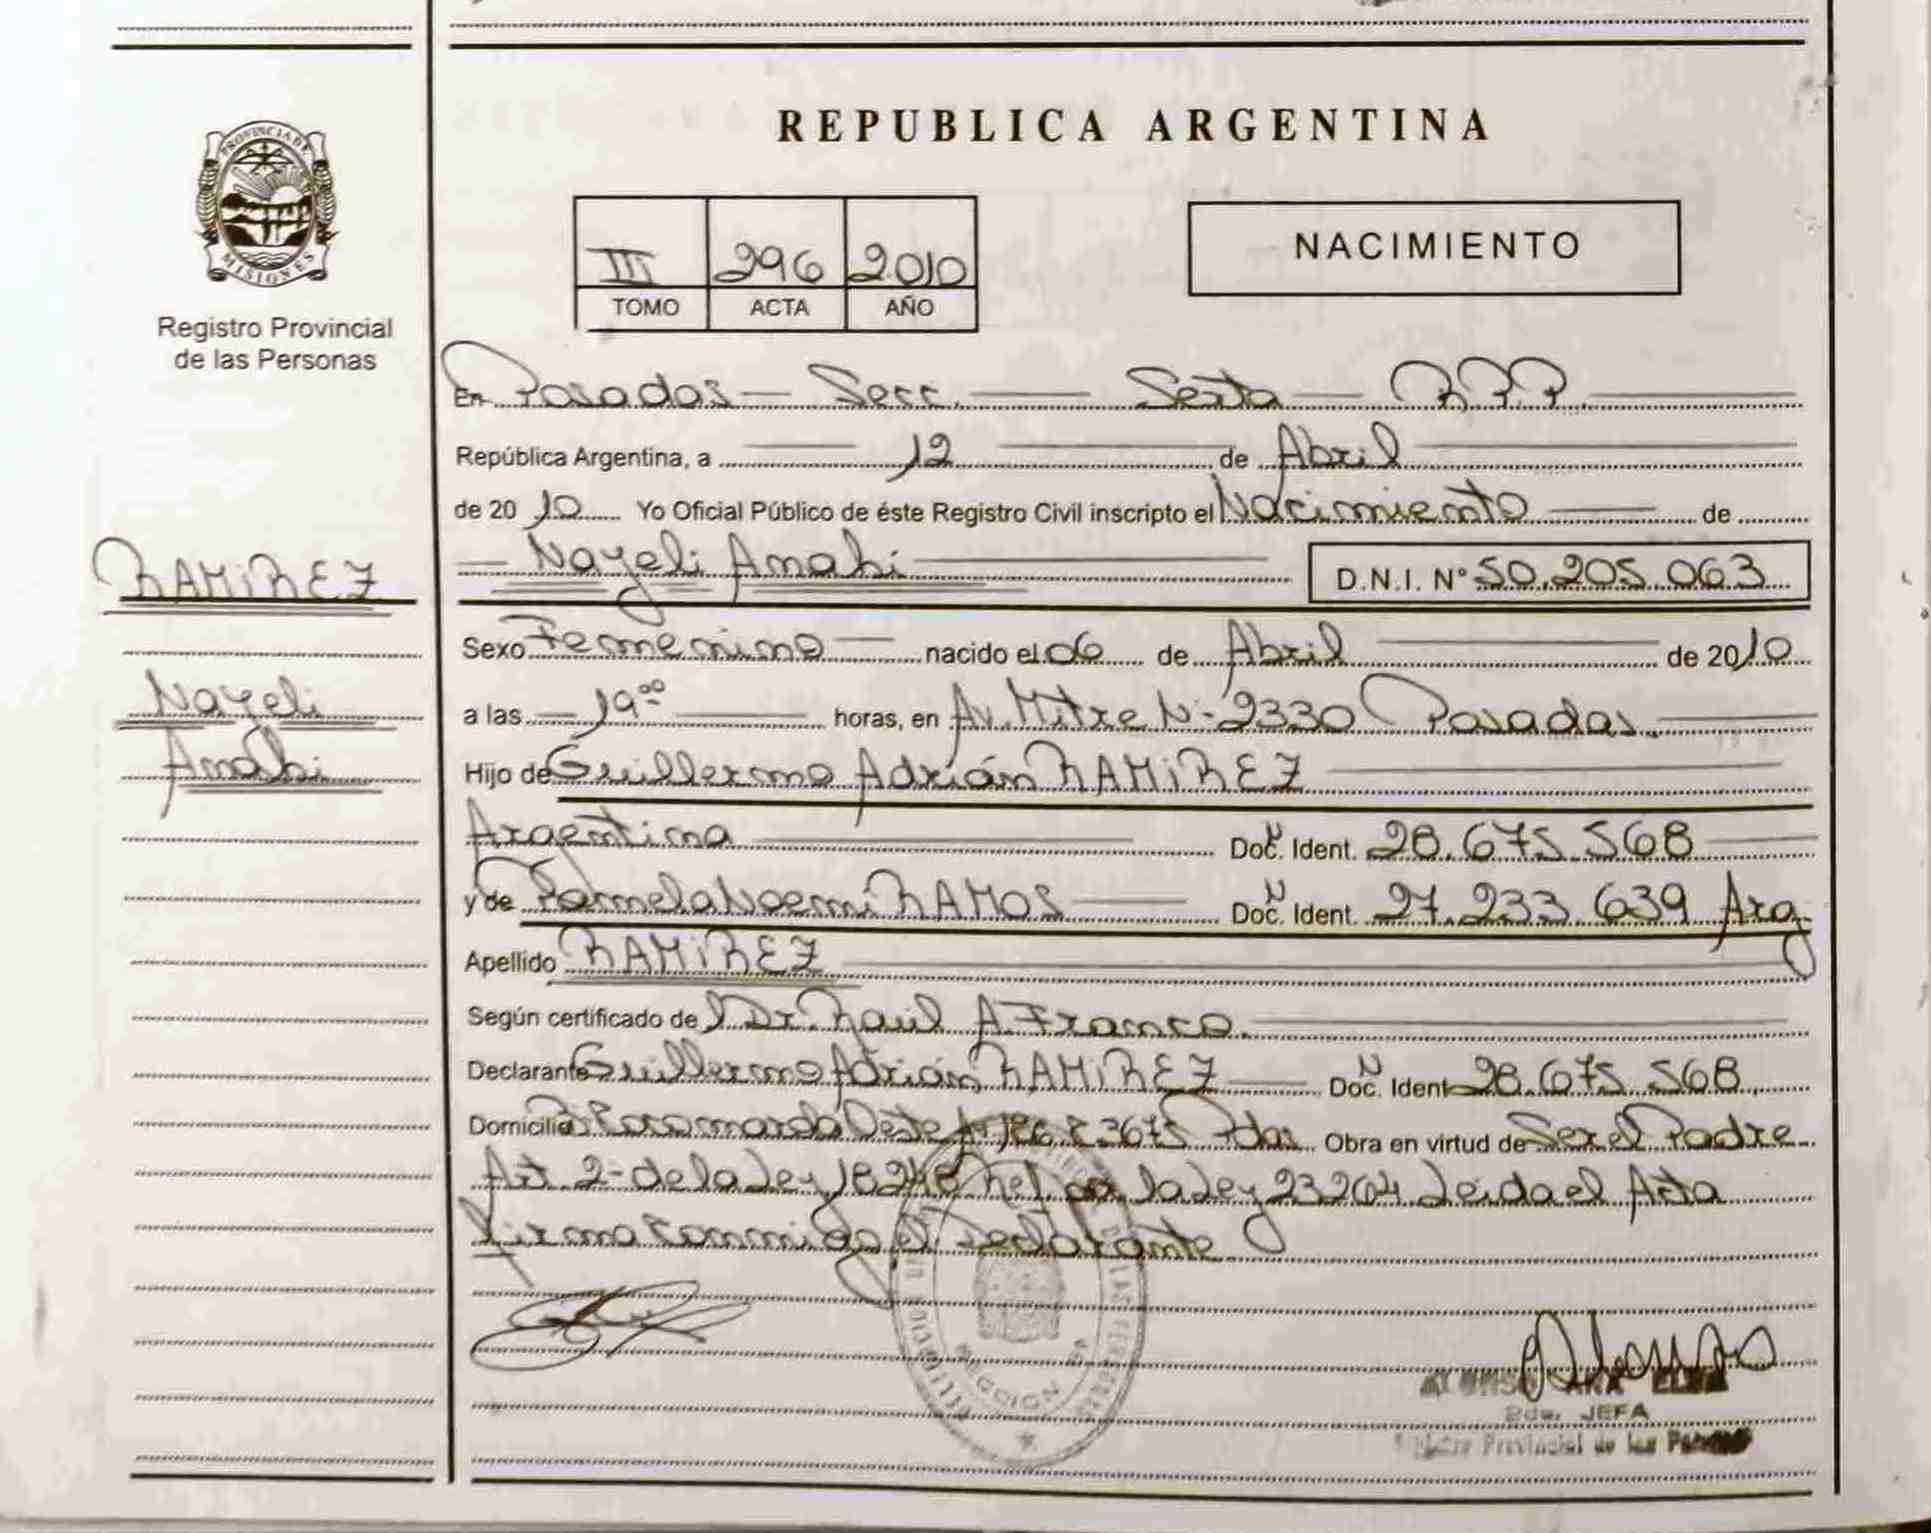 PROVINCIA DE
MISIONES
Registro Provincial
de las Personas
RAMIREZ
Nayeli
Amahi
REPUBLICA ARGENTINA
III 296 2010
TOMO ACTA AÑO
NACIMIENTO
En Posadas — Secc. — Sexta — R.P.P.
República Argentina, a 12 de Abril
de 2010 Yo Oficial Público de éste Registro Civil inscripto el Nacimiento de
Nayeli Amahi D.N.I. N° 50.205.063
Sexo Femenino nacido el 06 de Abril de 2010
a las 19⁰⁰ horas, en Av. Mitre N° 2330 Posadas.
Hijo de Guillermo Adrián RAMIREZ
Argentina Doc. Ident. 28.675.568
y de Pamela Noemi RAMOS Doc. Ident. 27.233.639 Arg
Apellido RAMIREZ
Según certificado del Dr. Raúl A. Franco.
Declarante Guillermo Adrián RAMIREZ Doc. Ident 28.675.568
Domicilio Oeste 3675 Pdas Obra en virtud de Ser el Padre
Art. 2- de la Ley 18248 Ref. por la Ley 23264 Leida el Acta
firma conmigo el Declarante
ANA ELVA
JEFA
Registro Provincial de las Personas